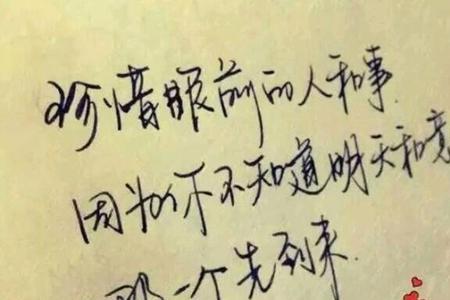 珍惜眼前的人和事.
因为你不知道明天和意
那一个先到来.